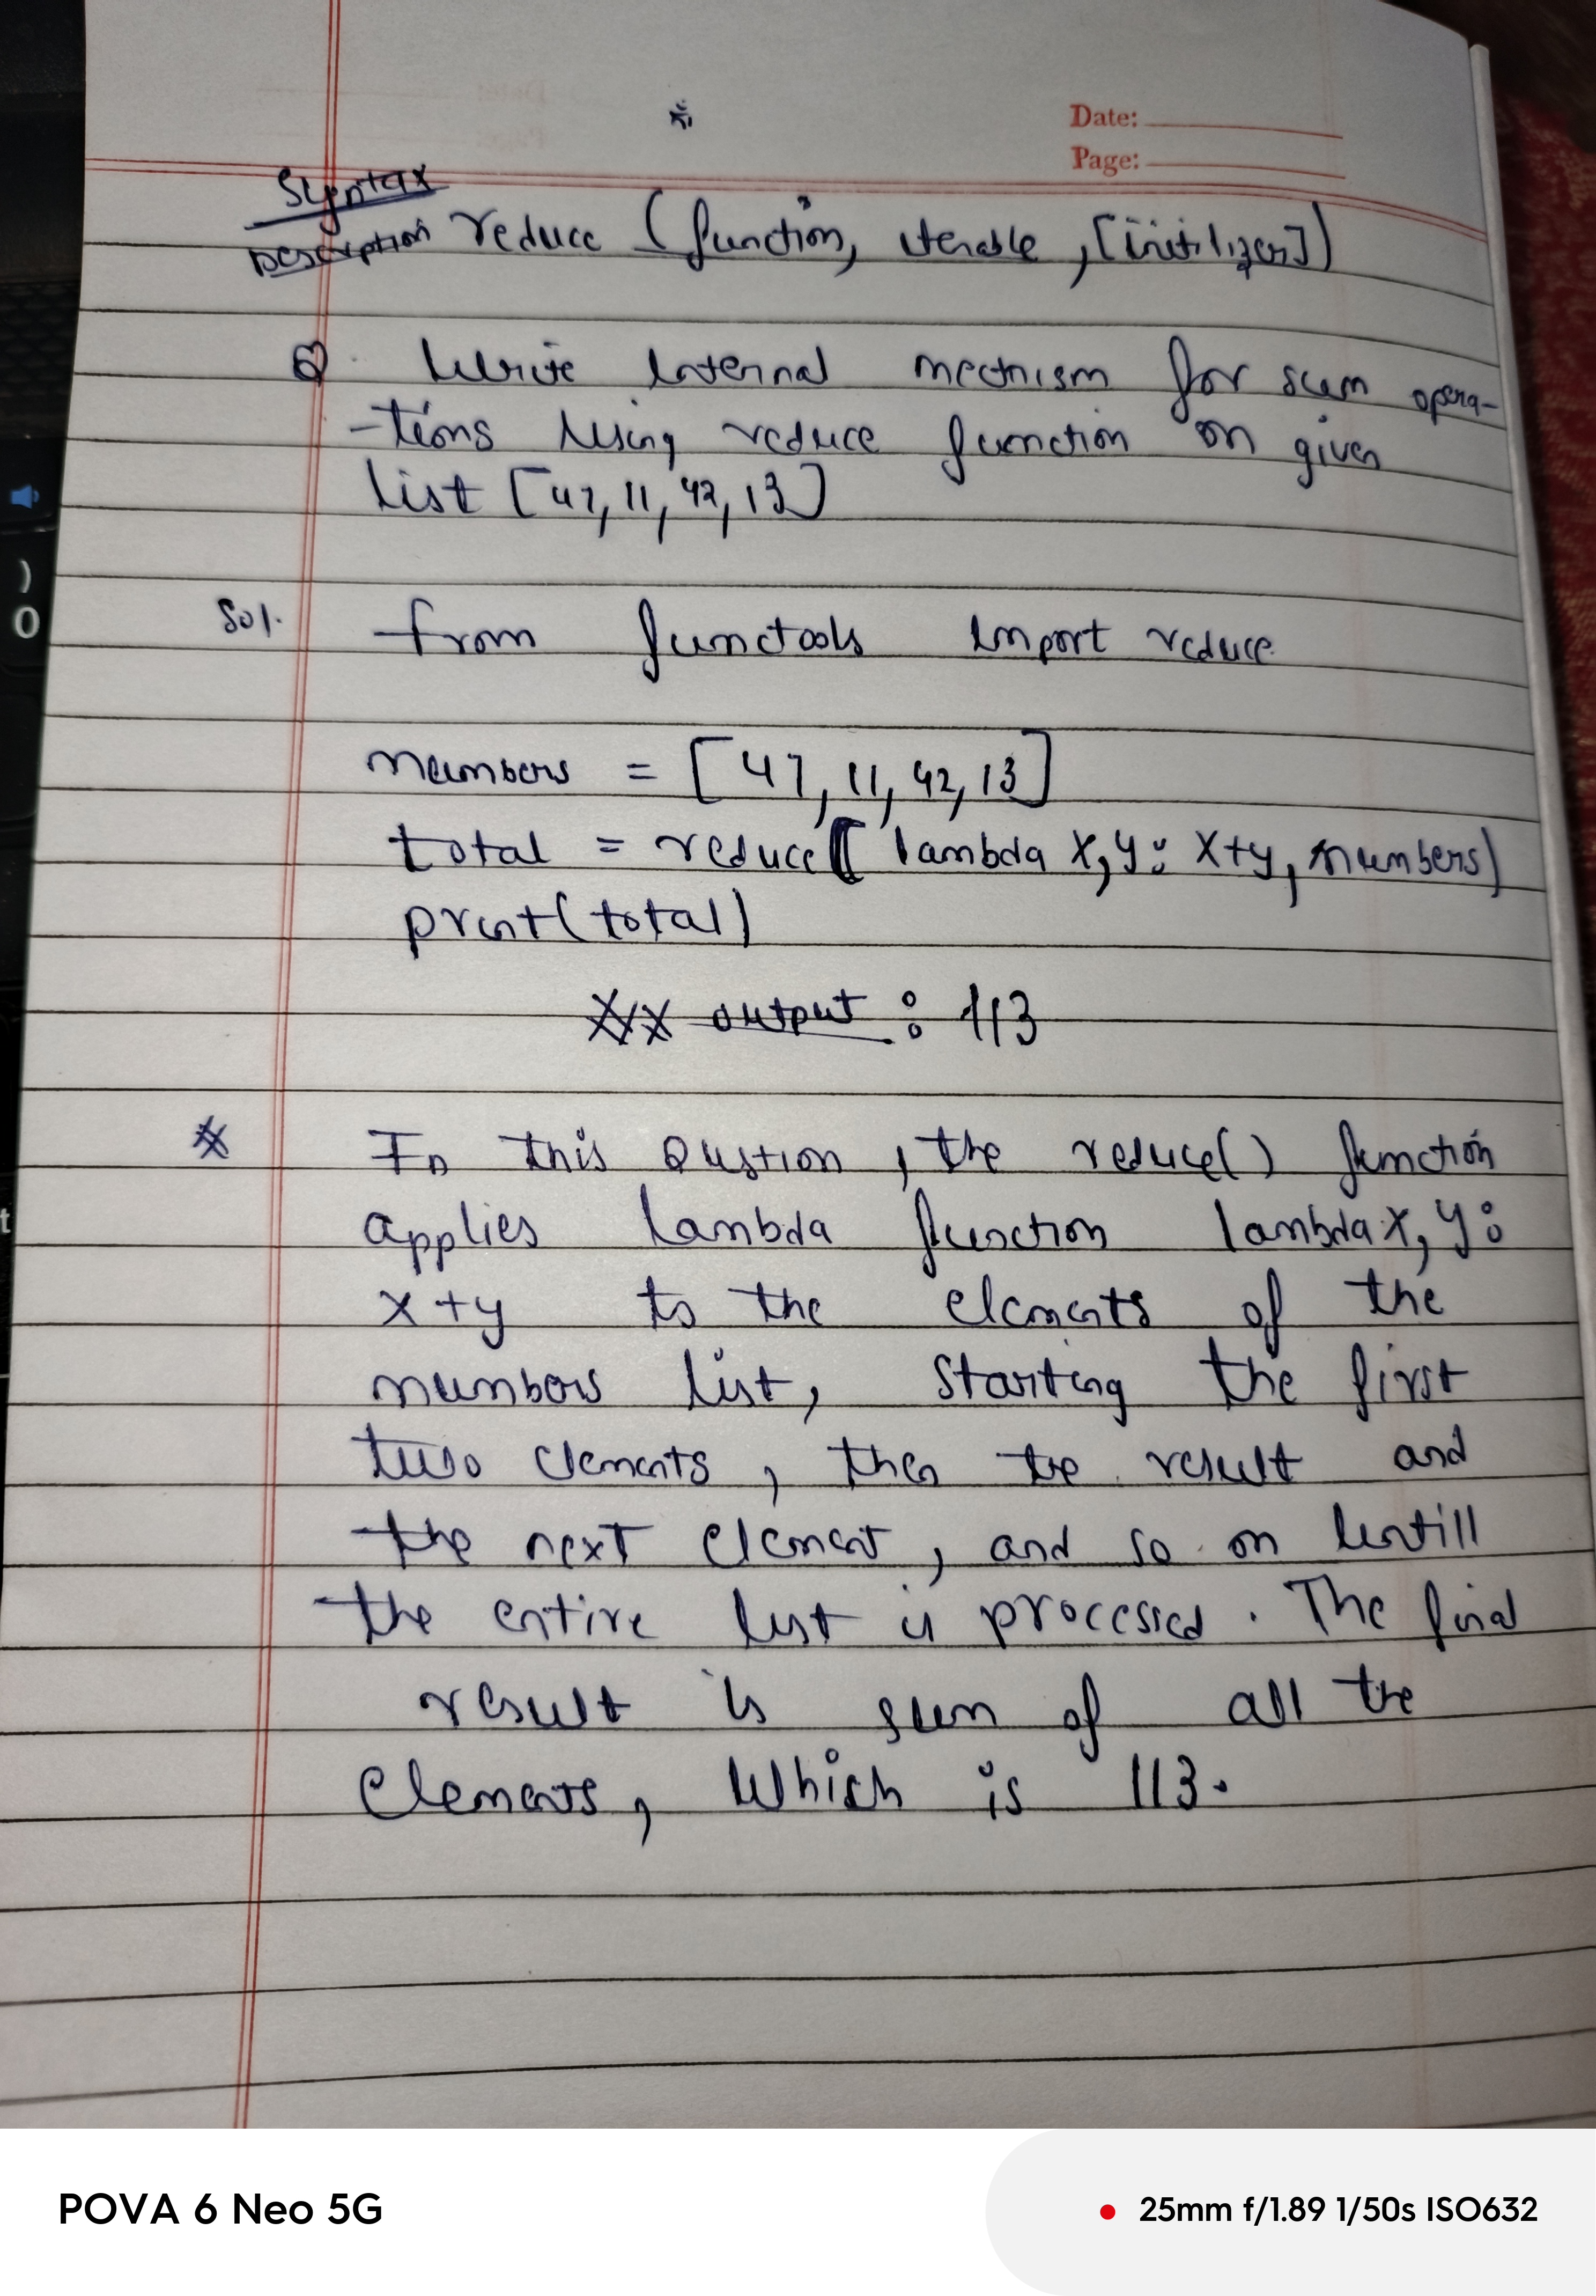 Date:
Page:
Syntax
Description reduce (function, iterable, [initilizer])
Q. Write Internal mechnism for sum opera-
-tions Using reduce function on given
List [47, 11, 42, 13]
Sol. from functools import reduce
numbers = [47, 11, 42, 13]
total = reduce( lambda x, y: x+y, numbers)
print(total)
output: 113
In this Qustion, the reduce() function
applies Lambda function lambda x, y:
x+y to the elements of the
numbers list, Starting the first
two elements, then the result and
the next element, and so on Untill
the entire list is processed. The final
result is sum of all the
elements, Which is 113.
POVA 6 Neo 5G
25mm f/1.89 1/50s ISO632